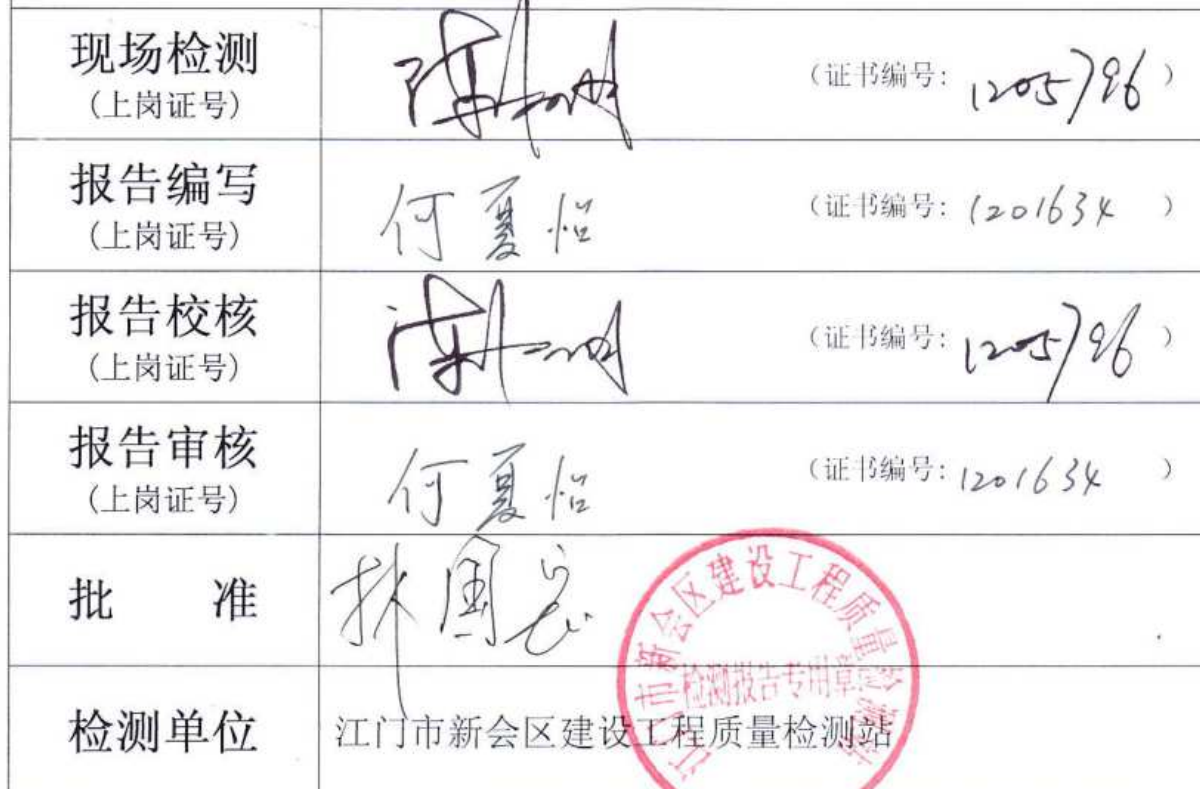 现场检测
(上岗证号)
(证书编号: 1205796)
报告编写
(上岗证号)
何夏怡
(证书编号: 1201634)
报告校核
(上岗证号)
(证书编号: 1205796)
报告审核
(上岗证号)
何夏怡
(证书编号: 1201634)
批 准
林国
检测单位
江门市新会区建设工程质量检测站
江门市新会区建设工程质量检测站
检测报告专用章